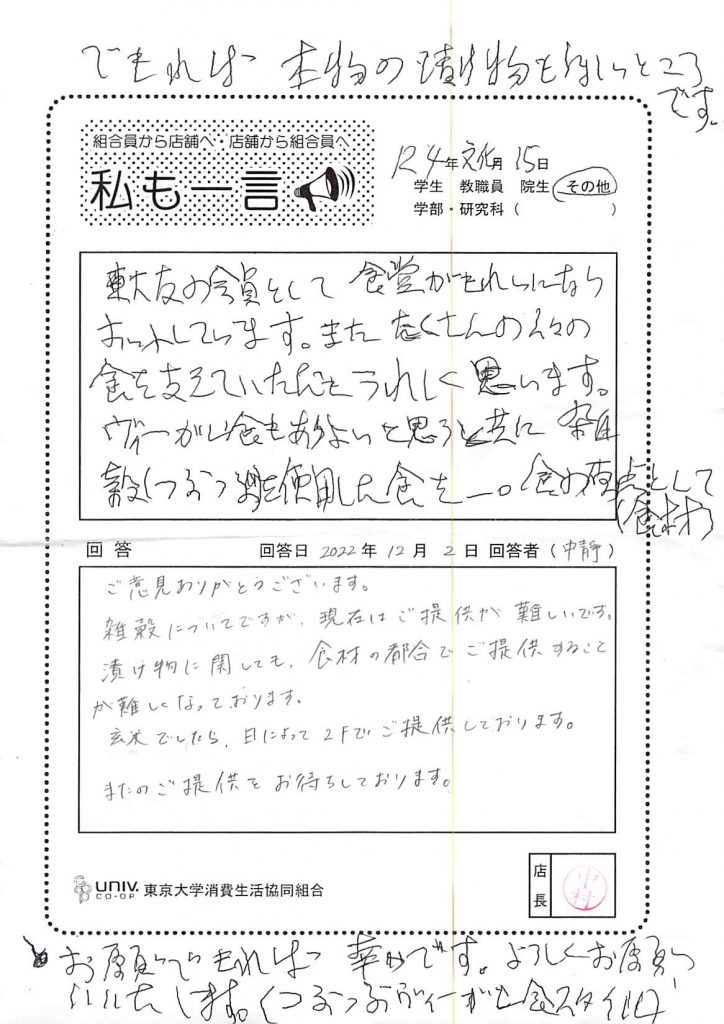 できれば 本物の漬け物も欲しいところ
です。
組合員から店舗へ・店舗から組合員へ
私も一言
R4年文化月15日
学生 教職員 院生 その他
学部・研究科( )
東大友の会員として 食堂がきれいになら
しています。また たくさんの人々の
食を支えていただきうれしく思います。
ヴィーガン食もありよいと思うと共に 雑
穀(つぶつぶ)を使用した食を―。(食の原点として
(食材)
回答 回答日 2022年 12月 2日 回答者(中静)
ご意見ありがとうございます。
雑穀についてですが、現在はご提供が難しいです。
漬け物に関しても、食材の都合でご提供すること
が難しくなっております。
玄米でしたら、日によって2Fでご提供しております。
またのご提供をお待ちしております。
店長
UNIV.
CO-OP
東京大学消費生活協同組合
お願いできれば 幸いです。よろしくお願い
いたします。(つぶつぶヴィーガン食スタイル)